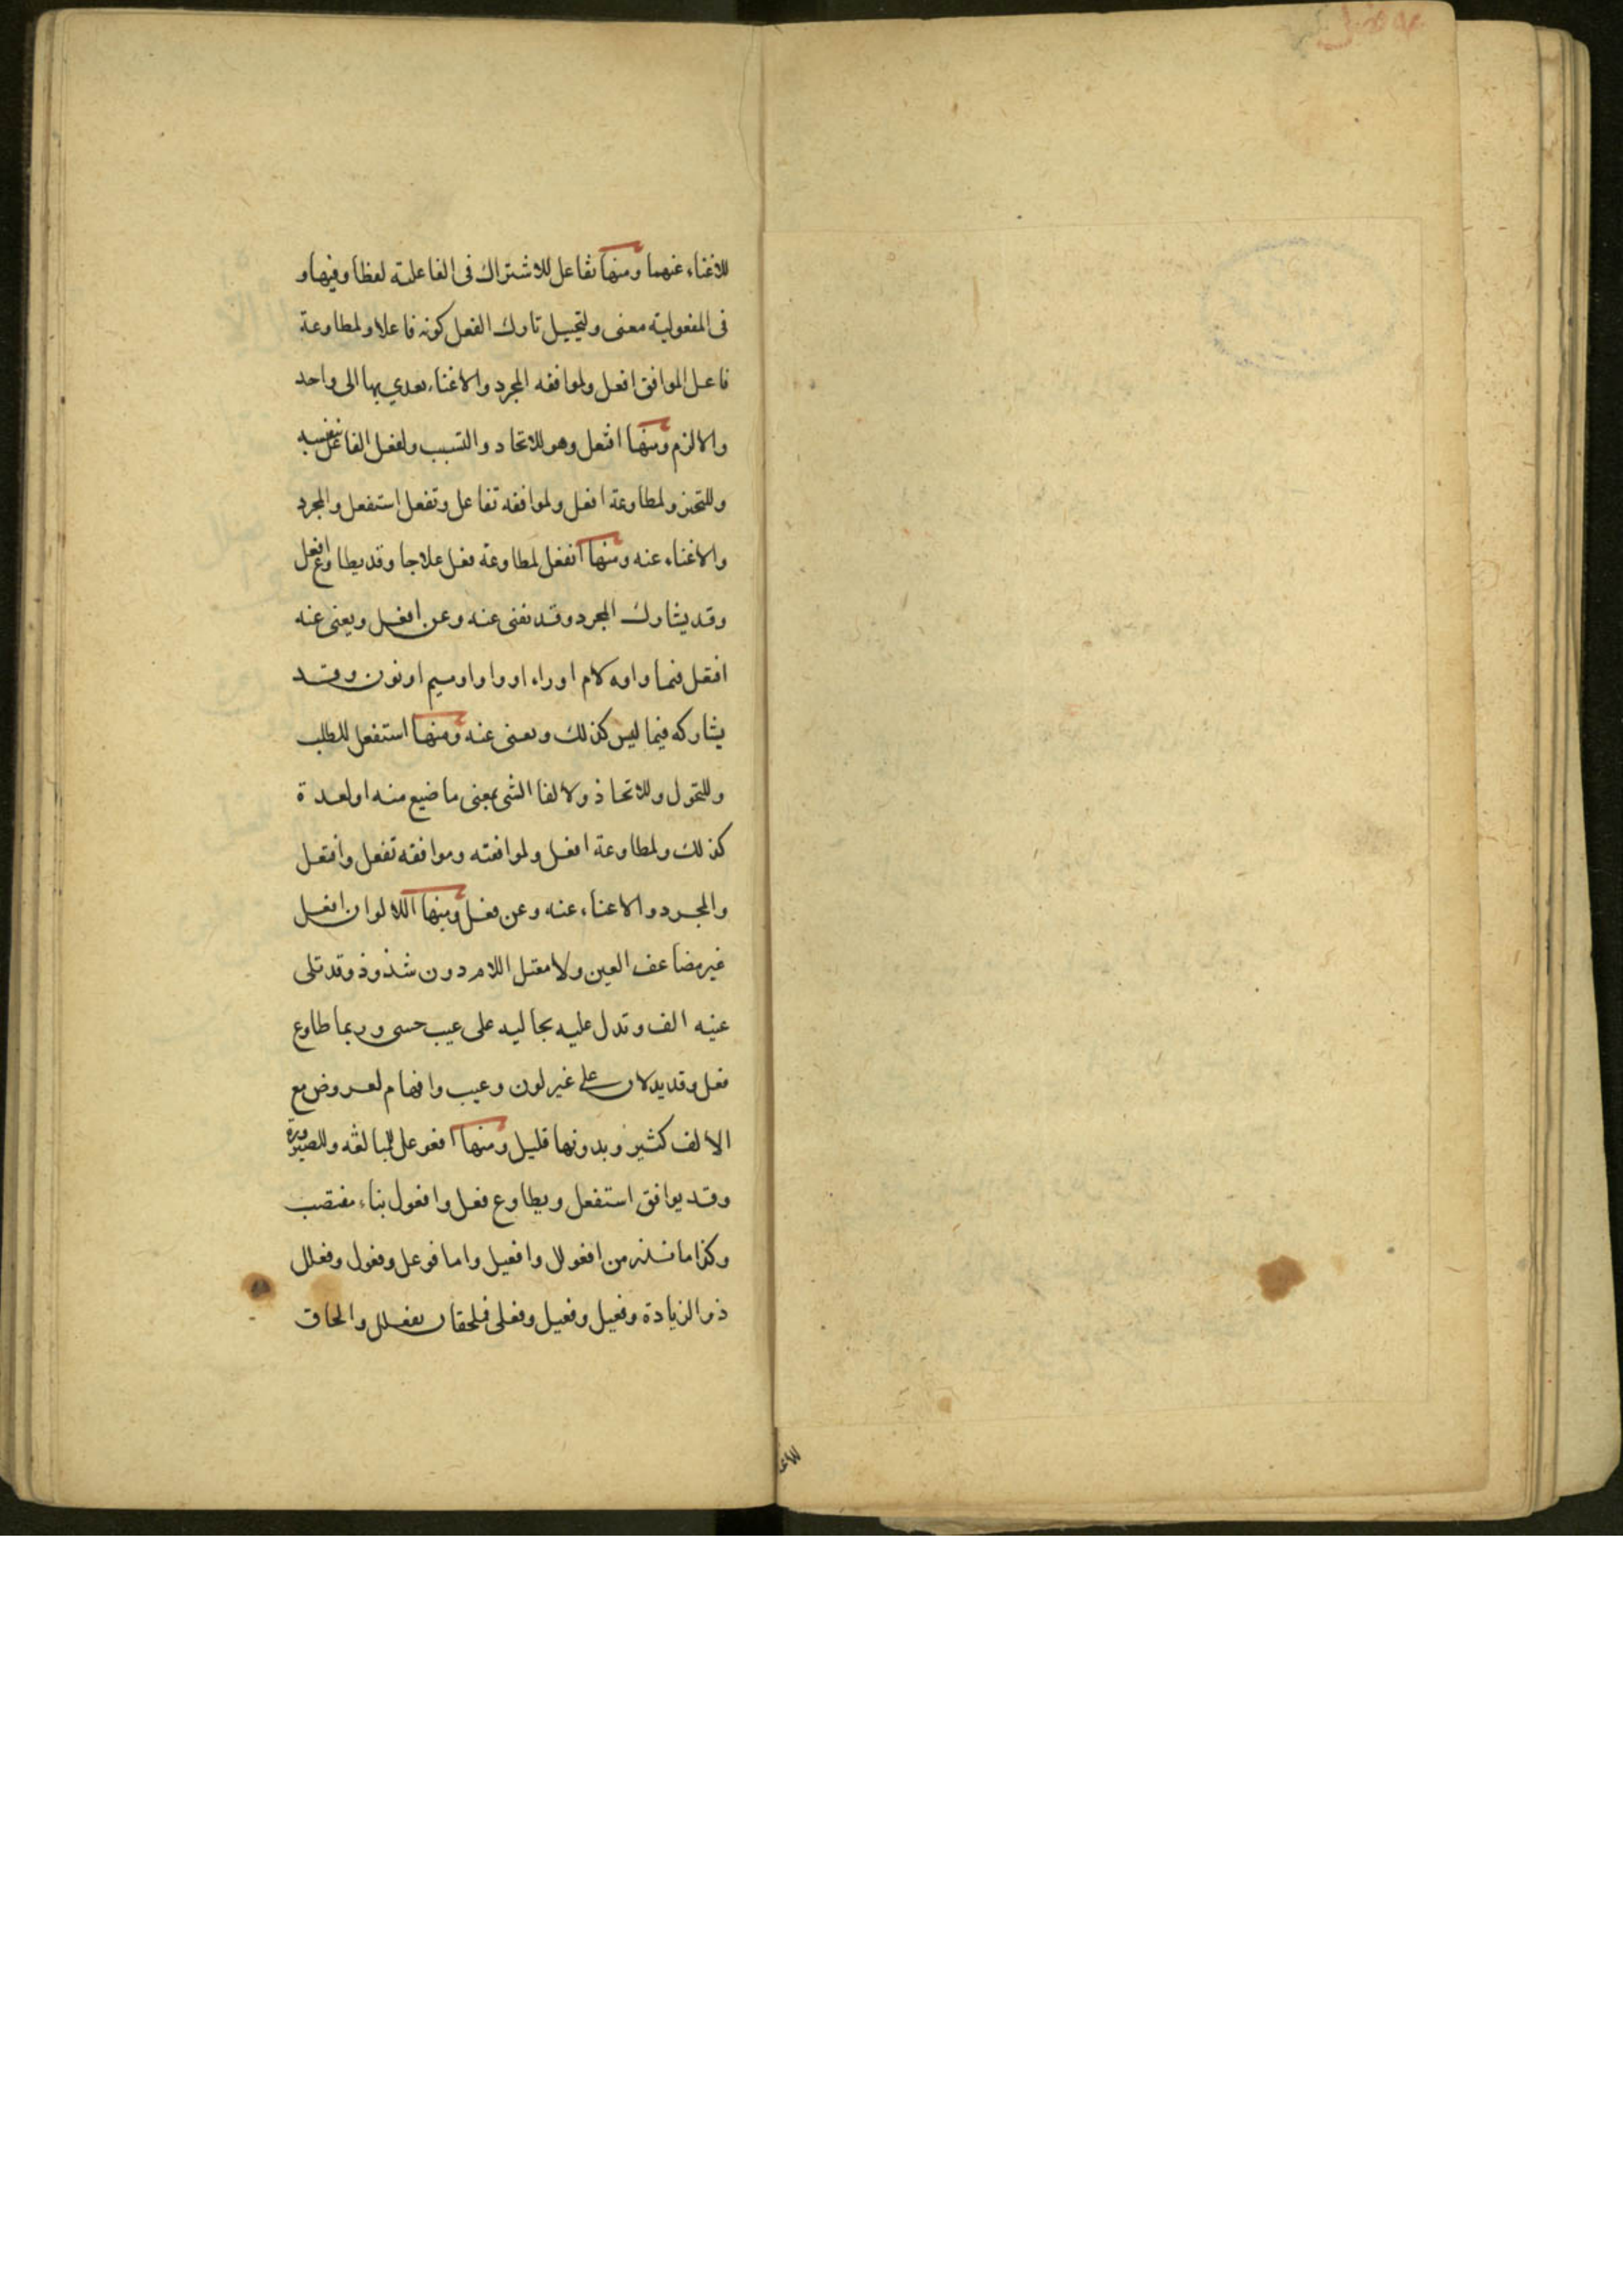 للاغناء عنهما ومنها تفاعل للاشتراك فى الفاعلية لفظا وفيها و
فى المفعولية معنى ولتخييل تارك الفعل كونه فاعلا ولمطاوعة
فاعل الموافق افعل ولموافقه المجرد والاغناء يعدي بها الى واحد
والالزم ومنها افتعل وهو للاتحاد والتسبب ولفعل الفاعل بنفسه
وللتخير ولمطاوعة افعل ولموافقه تفاعل وتفعل استفعل والمجرد
والاغناء عنه ومنها انفعل لمطاوعة فعل علاجا وقد يطاوع افعل
وقد يشارك المجرد وقد تغنى عنه وعن افعل ويغنى عنه
افتعل فيما واوه لام او راء او واو او ميم او نون وقد
يشاركه فيما ليس كذلك ويغنى عنه ومنها استفعل للطلب
وللتحول وللاتحاذ ولالفا الشى بمعنى ما ضيع منه اولعدة
كذلك ولمطاوعة افعل ولموافقته وموافقه تفعل وافتعل
والمجرد والاغناء عنه وعن فعل ومنها اللالوان افعل
غير مضاعف العين ولا معتل اللام دون شذوذ وقد تلى
عنيه الف وتدل عليه بحاليه على عيب حسى وربما طاوع
فعل وقد يدلان على غير لون وعيب وافهام لعروض مع
الالف كثير وبدونها قليل ومنها افعوعل للمبالغه وللصيرورة
وقد يوافق استفعل ويطاوع فعل وافعول بناء مقتضب
وكذا ما ندر من افعولل وافعيل واما فوعل وفعول وفعلل
ذو الزيادة وفعيل وفعيل وفعلى فملحقان بفعلل والحاق
للاغـ